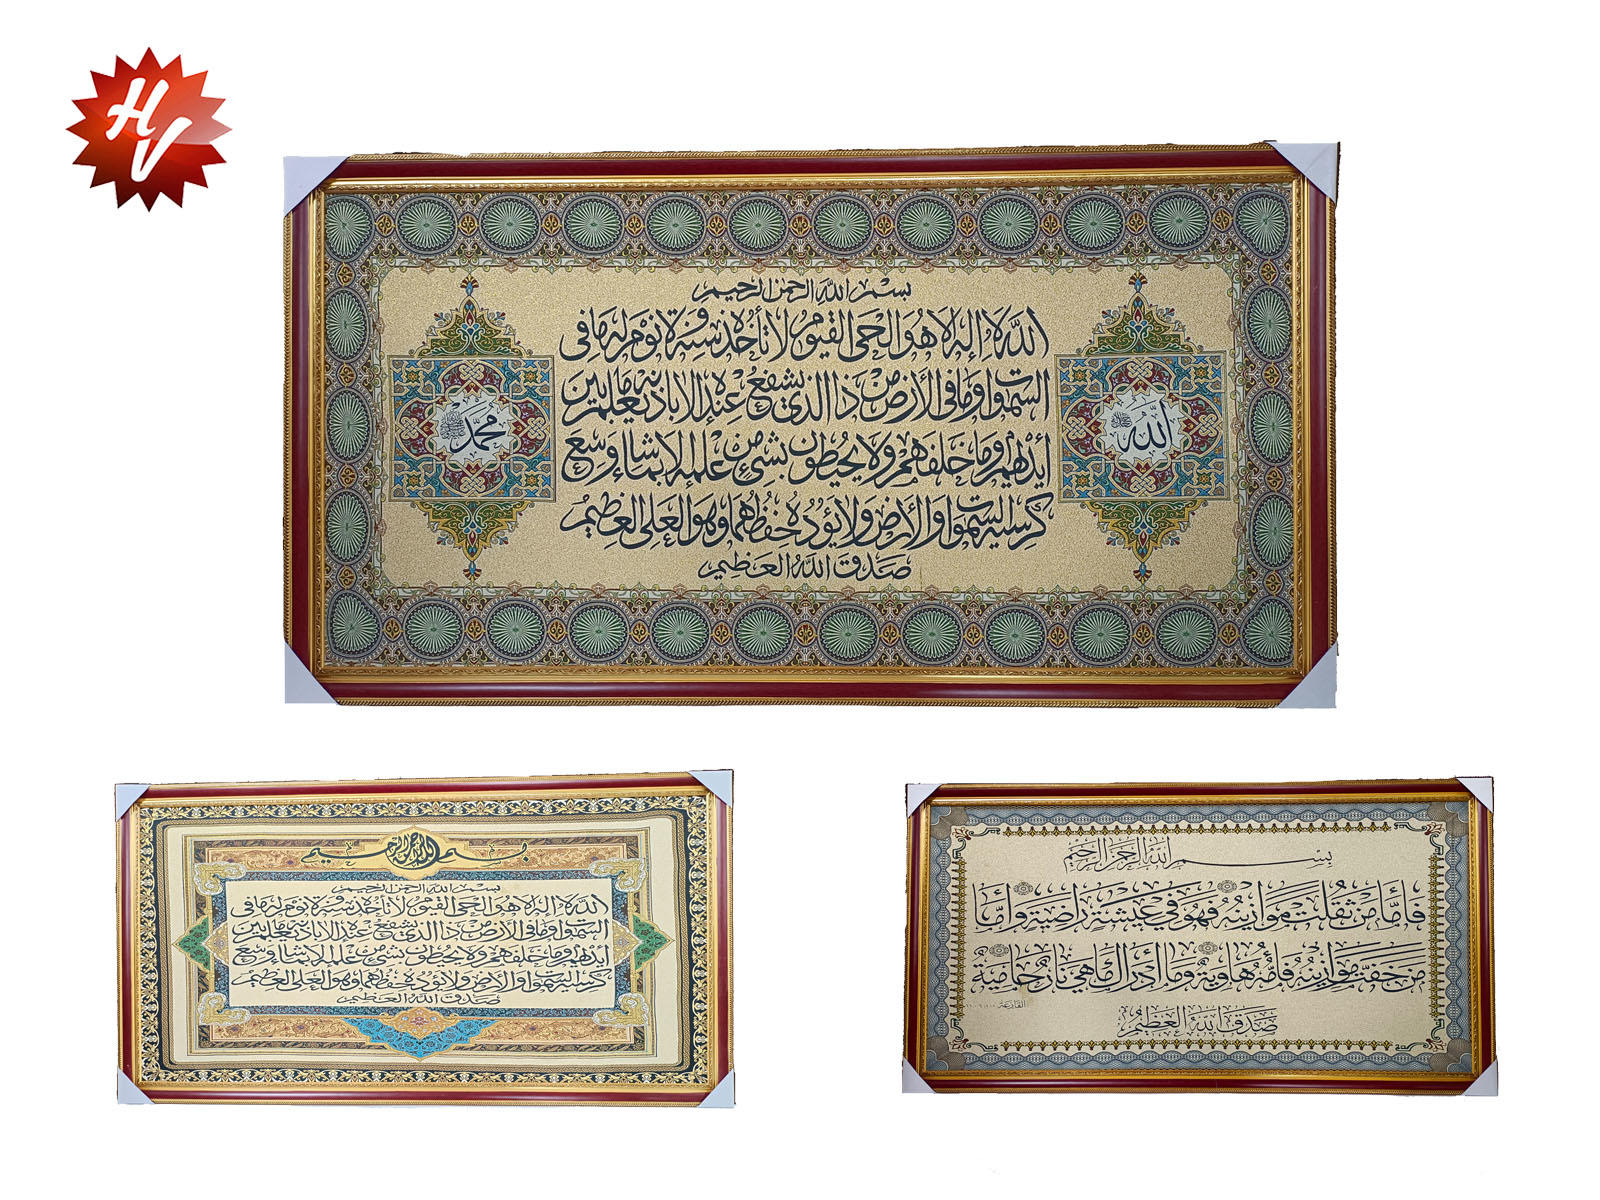 HV
بسم الله الرحمن الرحيم
الله لا إله إلا هو الحي القيوم لا تأخذه سنة ولا نوم له ما في
السموات وما في الأرض من ذا الذي يشفع عنده إلا بإذنه يعلم ما بين
أيديهم وما خلفهم ولا يحيطون بشيء من علمه إلا بما شاء وسع
كرسيه السموات والأرض ولا يؤده حفظهما وهو العلي العظيم
صدق الله العظيم
الله
محمد
بسم الله الرحمن الرحيم
بسم الله الرحمن الرحيم
الله لا إله إلا هو الحي القيوم لا تأخذه سنة ولا نوم له ما في
السموات وما في الأرض من ذا الذي يشفع عنده إلا بإذنه يعلم ما بين
أيديهم وما خلفهم ولا يحيطون بشيء من علمه إلا بما شاء وسع
كرسيه السموات والأرض ولا يؤده حفظهما وهو العلي العظيم
صدق الله العظيم
بسم الله الرحمن الرحيم
فَأَمَّا مَن ثَقُلَتْ مَوَازِينُهُ فَهُوَ فِي عِيشَةٍ رَاضِيَةٍ وَأَمَّا
مَنْ خَفَّتْ مَوَازِينُهُ فَأُمُّهُ هَاوِيَةٌ وَمَا أَدْرَاكَ مَا هِيَ نَارٌ حَامِيَةٌ
القارعة
صدق الله العظيم